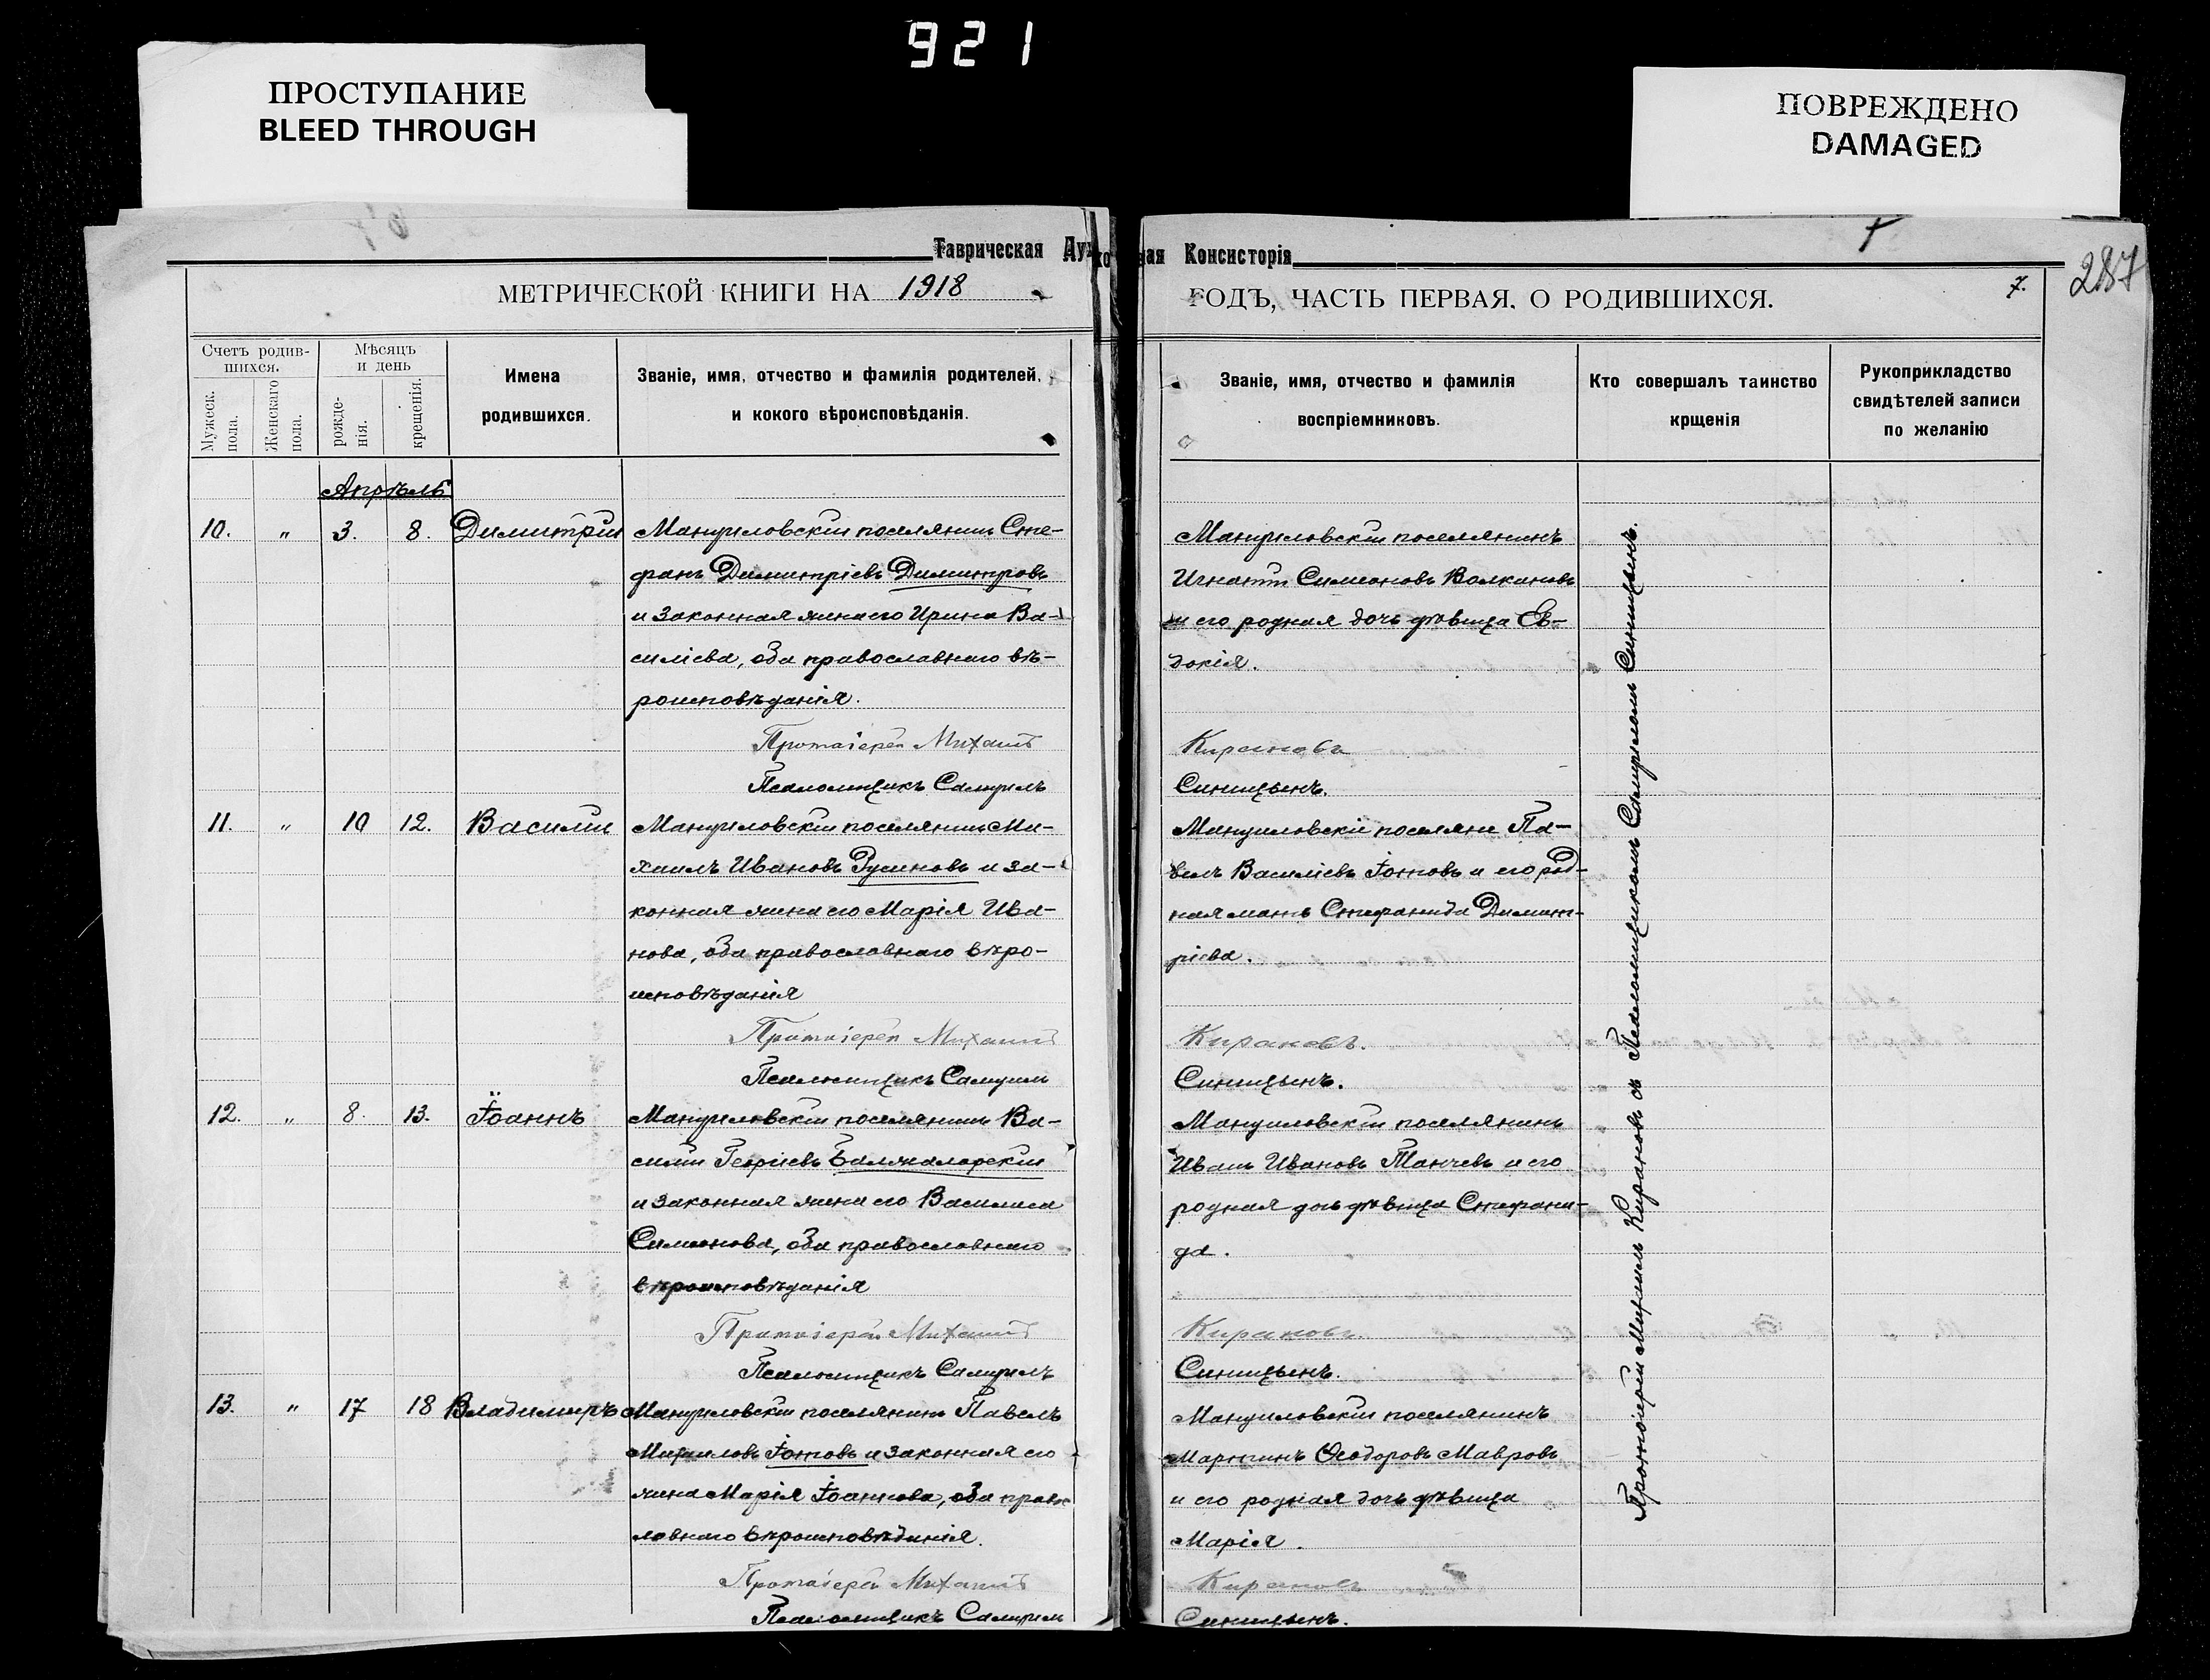 921
ПРОСТУПАНИЕ
BLEED THROUGH
ПОВРЕЖДЕНО
DAMAGED
Таврическая Духовная Консисторія
МЕТРИЧЕСКОЙ КНИГИ НА 1918
ГОДЪ, ЧАСТЬ ПЕРВАЯ, О РОДИВШИХСЯ.
7.
287
Счетъ родив-
шихся.
Мужеск.
пола.
Женскаго
пола.
Мѣсяцъ
и день
рожде-
нія.
крещенія.
Имена
родившихся.
Званіе, имя, отчество и фамилія родителей,
и кокого вѣроисповѣданія.
Званіе, имя, отчество и фамилія
воспріемниковъ.
Кто совершалъ таинство
крщенія
Рукоприкладство
свидѣтелей записи
по желанію
Апрѣль
10. " 3. 8. Димитрій
Мануиловскій поселянинъ Сте-
фанъ Димитріевъ Димитровъ
и законная жена его Ирина Ва-
силіева, оба православнаго вѣ-
роисповѣданія.
Протоіерей Михаилъ
Псаломщикъ Самуилъ
Мануиловскій поселянинъ
Игнатій Симеоновъ Волкановъ
и его родная дочь дѣвица Ев-
докія.
Кирановъ
Синицынъ.
11. " 10 12. Василій
Мануиловскій поселянинъ Ми-
хаилъ Ивановъ Русиновъ и за-
конная жена его Марія Ива-
нова, оба православнаго вѣро-
исповѣданія
Протоіерей Михаилъ
Псаломщикъ Самуилъ
Мануиловскіе поселяне Па-
велъ Василіевъ Іотовъ и его род-
ная мать Стефанида Димит-
ріева.
Кирановъ.
Синицынъ.
12. " 8. 13. Іоаннъ
Мануиловскій поселянинъ Ва-
силій Георгіевъ Балжаларскій
и законная жена его Василиса
Симеонова, оба православнаго
вѣроисповѣданія
Протоіерей Михаилъ
Псаломщикъ Самуилъ
Мануиловскій поселянинъ
Иванъ Ивановъ Танчевъ и его
родная дочь дѣвица Стефани-
да.
Кирановъ.
Синицынъ.
13. " 17 18 Владимиръ
Мануиловскій поселянинъ Павелъ
Михаиловъ Іотовъ и законная его
жена Марія Іоаннова, оба правос
лавнаго вѣроисповѣданія.
Протоіерей Михаилъ
Псаломщикъ Самуилъ
Мануиловскій поселянинъ
Мартинъ Ѳеодоровъ Мавровъ
и его родная дочь дѣвица
Марія.
Кирановъ
Синицынъ.
Протоіерей Михаилъ Кирановъ съ Псаломщикомъ Самуиломъ Синицынъ.